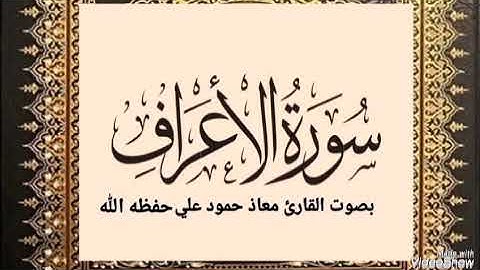 سُورَةُ الأَعْرَافِ
بصوت القارئ معاذ حمود علي حفظه الله
Made with
VideoShow